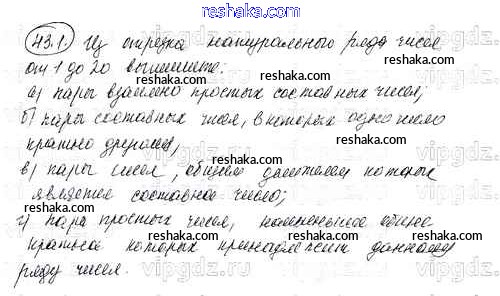 reshak.ru
43.1. Из отрезка натурального ряда чисел
от 1 до 20 выпишите:
а) пары взаимно простых составных чисел;
б) пары составных чисел, в которых одно число
кратно другому;
в) пары чисел, общим делителем которых
является составное число;
г) пара простых чисел, наименьшее общее
кратное которых принадлежит данному
ряду чисел.
reshaka.com
reshaka.com
reshaka.com
reshaka.com
reshaka.com
reshaka.com
reshaka.com
reshaka.com
vipgdz.ru